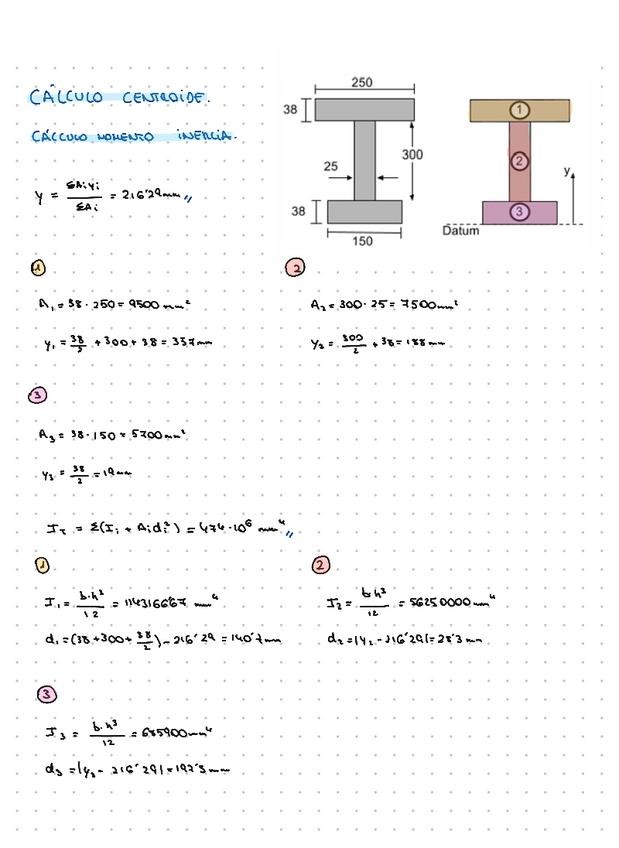 CÁLCULO CENTROIDE.
CÁLCULO MOMENTO INERCIA.
y = ΣAiyi / ΣAi = 216'29mm
250
38
300
25
38
150
1
2
3
y
Datum
1
A₁ = 38 · 250 = 9500 mm²
y₁ = 38/2 + 300 + 38 = 357mm
2
A₂ = 300 · 25 = 7500mm²
y₂ = 300/2 + 38 = 188 mm
3
A₃ = 38 · 150 = 5700mm²
y₃ = 38/2 = 19mm
I_T = Σ(Ii + Aidi²) = 474·10⁶ mm⁴
1
I₁ = b·h³/12 = 1143166'67 mm⁴
d₁ = (38+300+38/2) - 216'29 = 140'7mm
2
I₂ = b·h³/12 = 56250000mm⁴
d₂ = |y₂ - 216'29| = 28'3 mm.
3
I₃ = b·h³/12 = 685900mm⁴
d₃ = |y₃ - 216'29| = 197'3mm